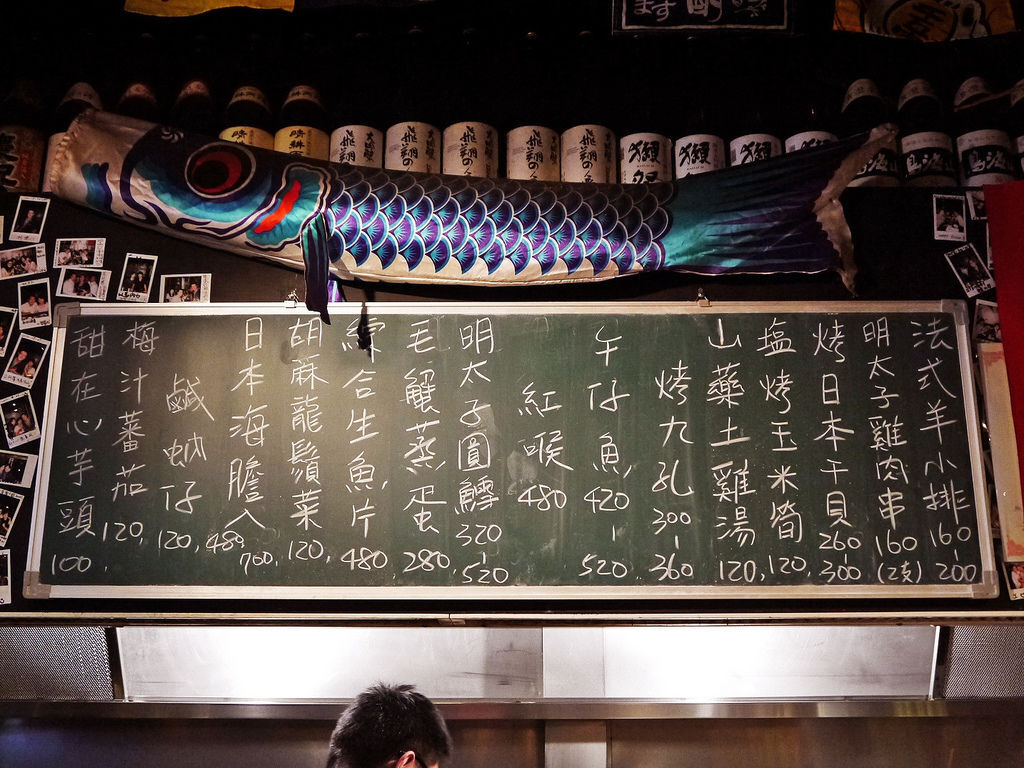 ます
法式羊小排160-200
明太子雞肉串160(2支)
烤日本干貝260-300
塩烤玉米筍120,
山藥土雞湯120,
烤九孔300-360
午仔魚420-520
紅喉480
明太子圓鱈320-520
毛蟹蒸蛋280,
綜合生魚片480,
胡蔴龍鬚菜120,
日本海膽480入700,
鹹蚋仔120,
梅汁蕃茄120,
甜在心芋頭100,
飛翔の
飛翔の
飛翔の
飛翔の
獺祭